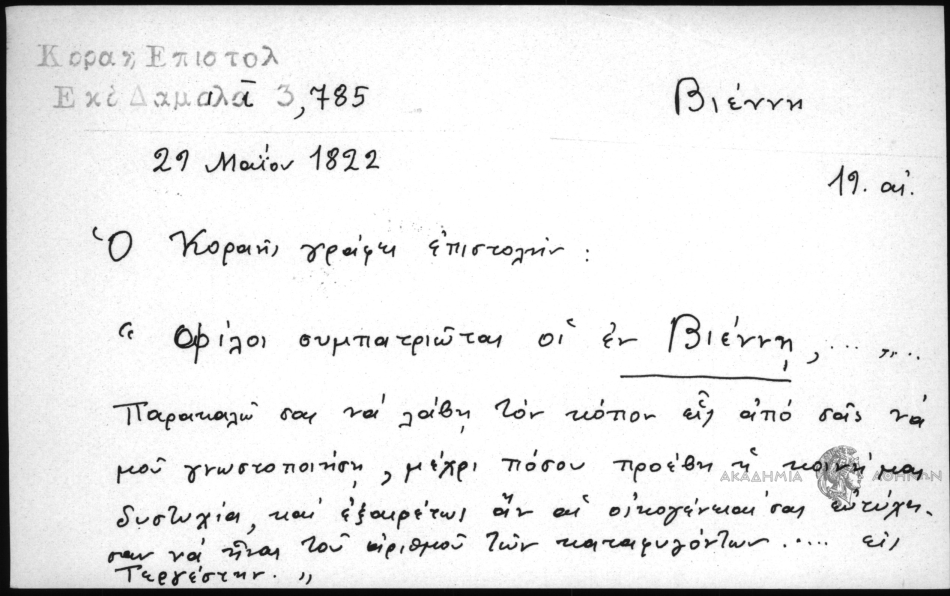 Κοραῆ Επιστολ
Εκδ Δαμαλᾶ 3,785
Βιέννη
29 Μαΐου 1822
19. αἰ.
Ὁ Κοραῆς γράφει ἐπιστολήν :
“ Φίλοι συμπατριῶται οἱ ἐν Βιέννῃ, ... ....
Παρακαλῶ σας νά λάβῃ τόν κόπον εἷς ἀπό σᾶς νά
μοῦ γνωστοποιήσῃ, μέχρι πόσου προέβη ἡ κοινή μας
δυστυχία, καί ἐξαιρέτως ἄν αἱ οἰκογένειαί σας εὐτύχη-
σαν νά ἦναι τοῦ ἀριθμοῦ τῶν καταφυγόντων .... εἰς
Τεργέστην. „
ΑΚΑΔΗΜΙΑ ΑΘΗΝΩΝ